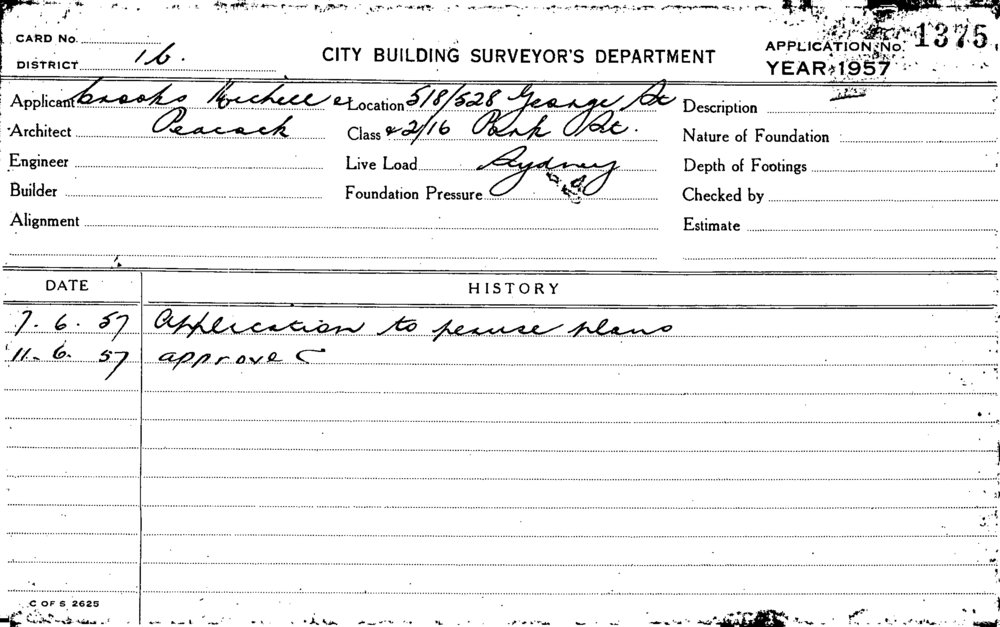 CARD No.
DISTRICT 16.
CITY BUILDING SURVEYOR'S DEPARTMENT
APPLICATION No. 1375
YEAR 1957
Applicant Crooks Michell &
Location 518/528 George St
Description
Architect Peacock
Class & 2/16 Park St.
Nature of Foundation
Engineer
Live Load Sydney
Depth of Footings
Builder
Foundation Pressure
Checked by
Alignment
Estimate
DATE HISTORY
7.6.57 Application to peruse plans
11.6.57 approve
C OF S 2625